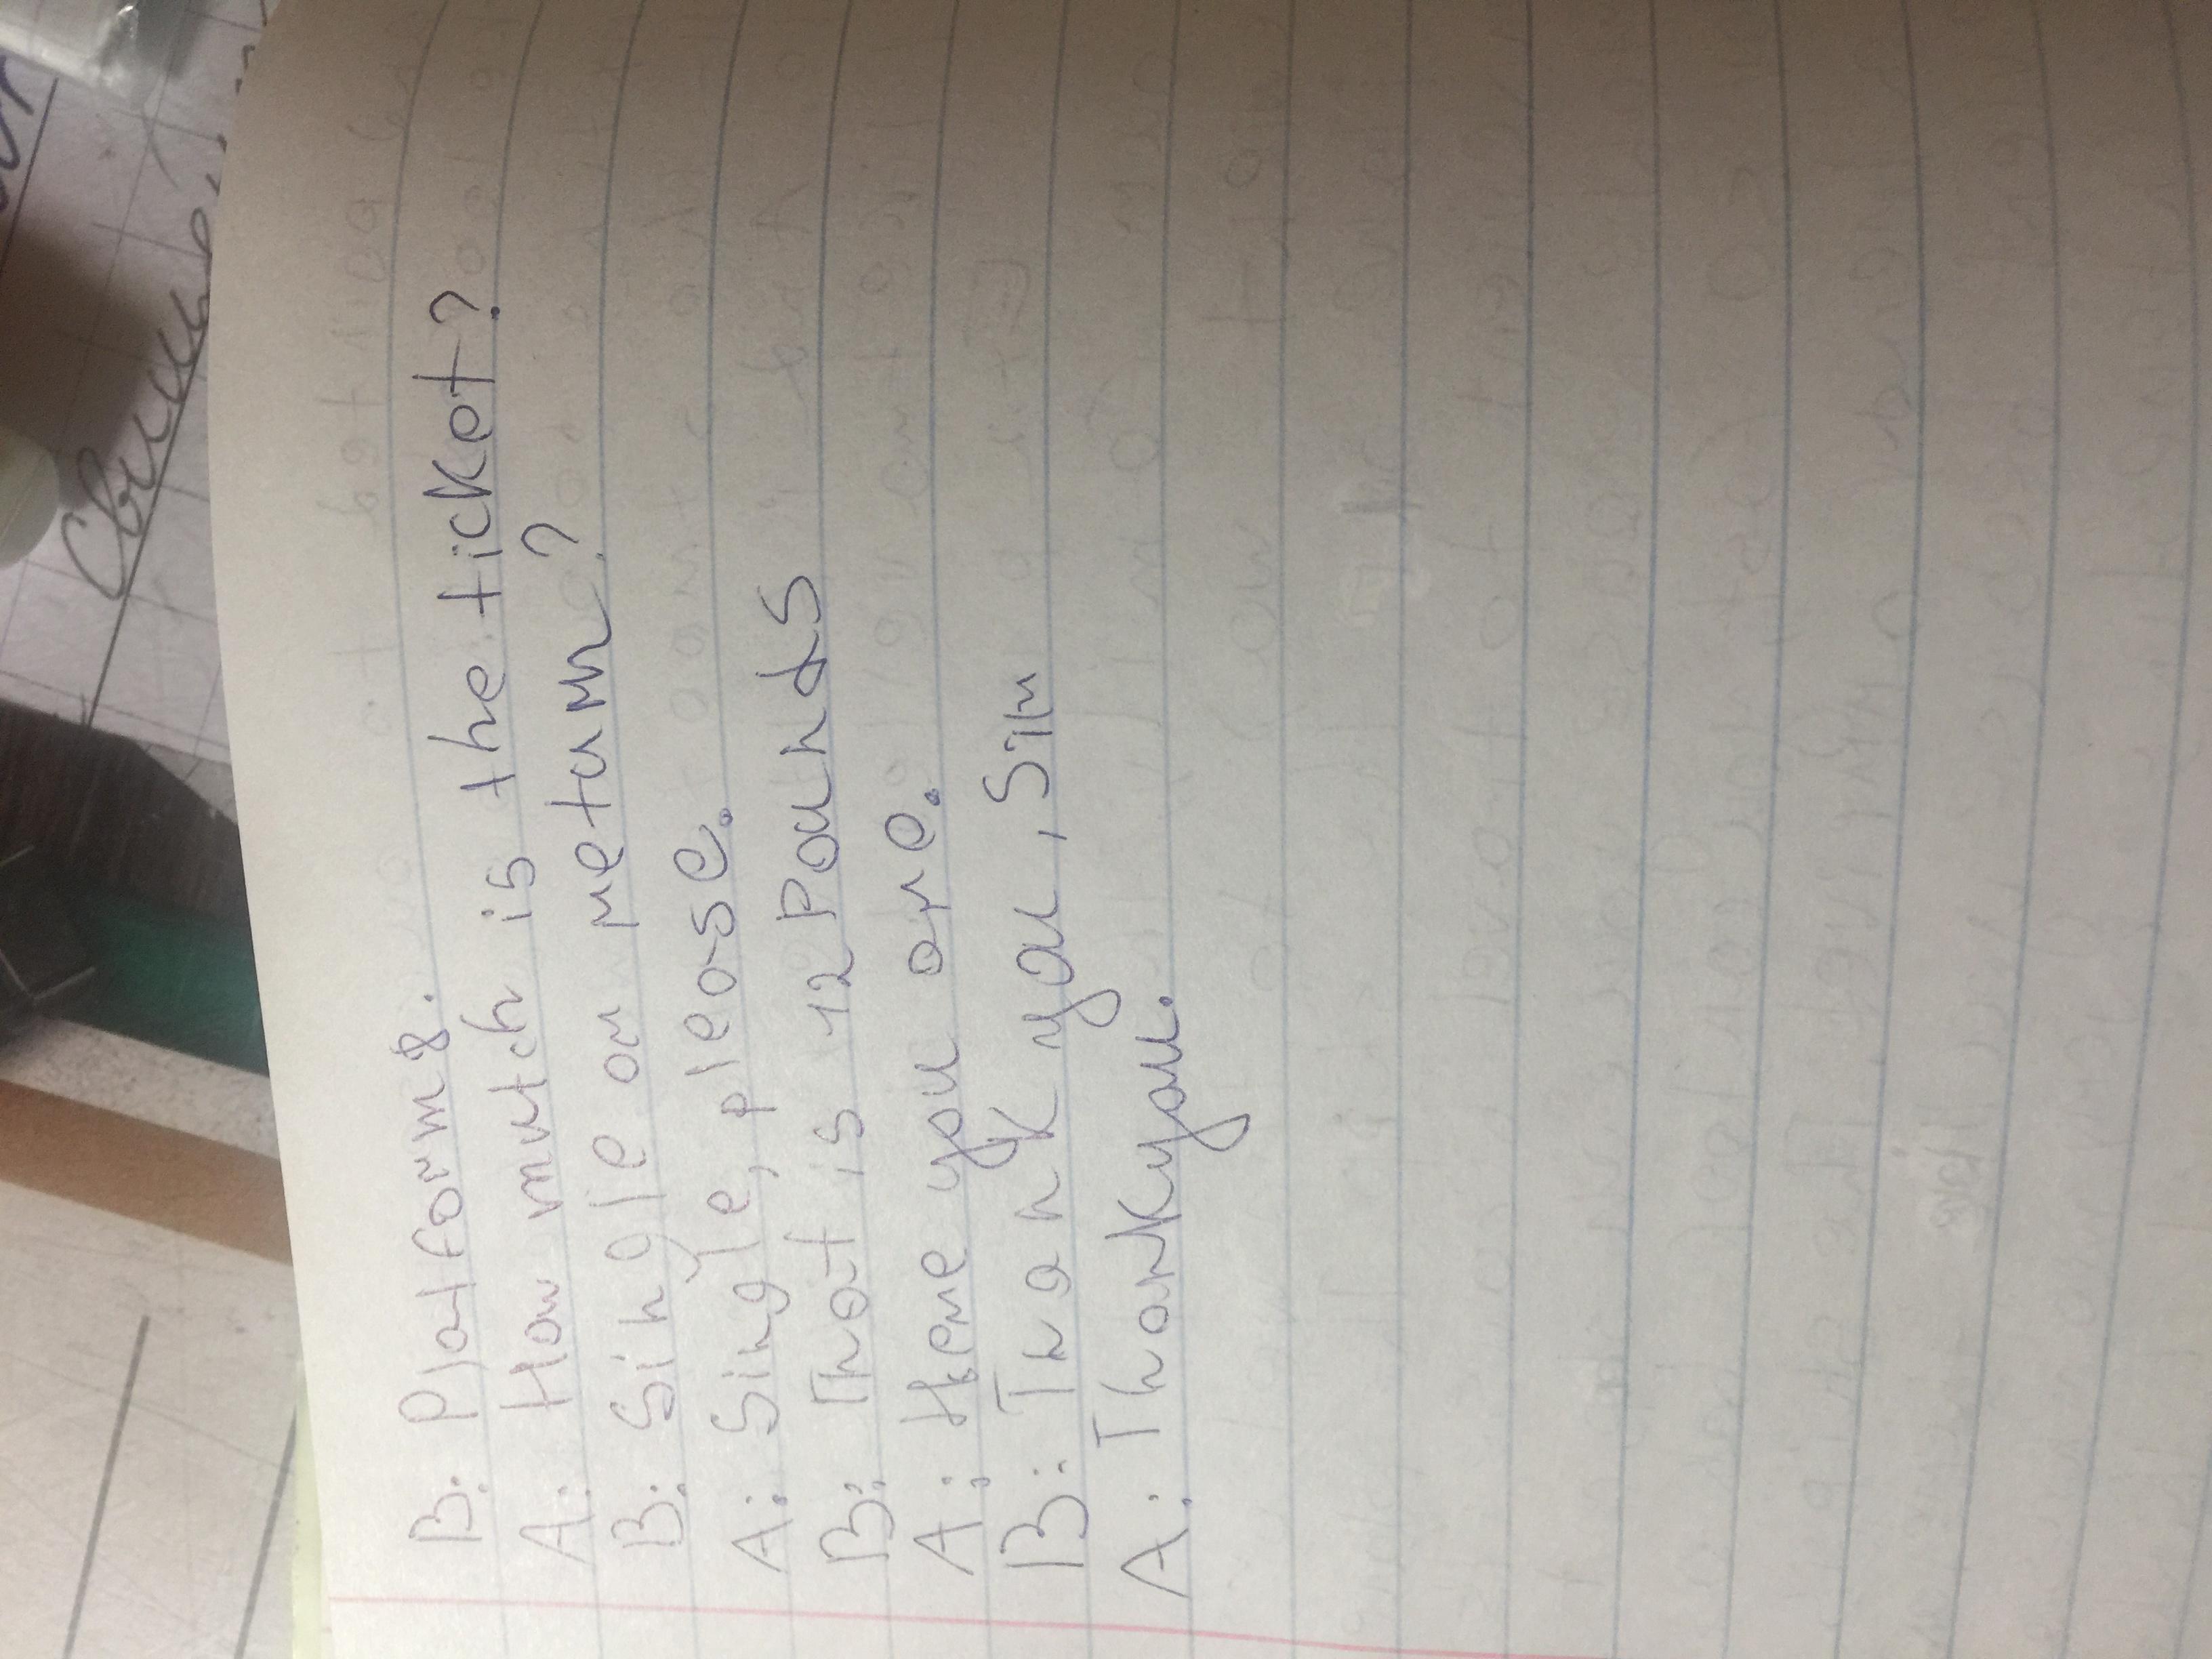 B: Platform 8.
A: How mutch is the ticket?
B: Single or return?
A: Single, please.
B: That is 12 Pounds
A: Here you are.
B: Thank you, Sir
A: Thank you.